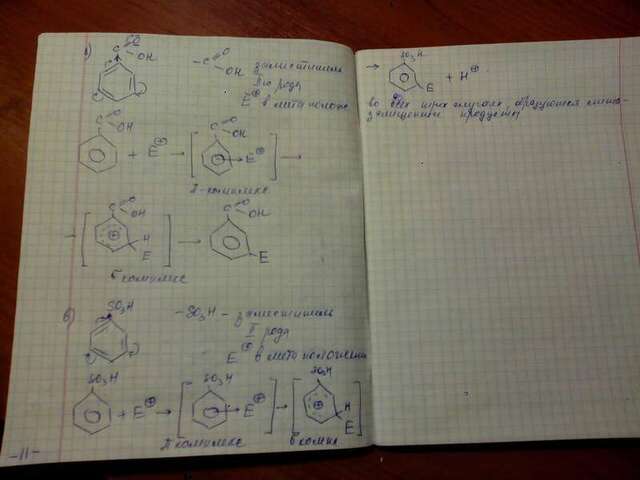 C O OH
-C O OH заместитель
II рода
E⊕ в мета полож
C O OH
+ E⊕ → [ C O OH E⊕ ] →
π-комплекс
→ [ C O OH ⊕ H E ] → C O OH E
σ комплекс
в) SO3H -SO3H - заместитель
II рода
E⊕ в мета положении
SO3H + E⊕ → [ SO3H E⊕ ] → [ SO3H ⊕ H E ]
π комплекс σ компл
-11-
→ SO3H E + H⊕
во всех случаях, образуются мета-
замещенные продукты